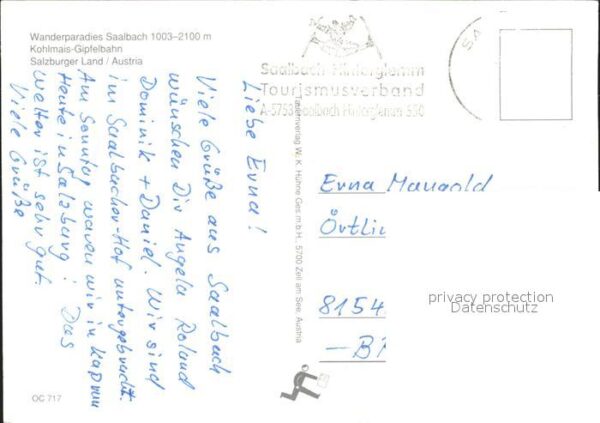 Wanderparadies Saalbach 1003–2100 m
Kohlmais-Gipfelbahn
Salzburger Land / Austria
Saalbach Hinterglemm
Tourismusverband
A-5753 Saalbach Hinterglemm 550
SA
Liebe Erna!
Viele Grüße aus Saalbach
wünschen Dir Angela Roland
Dominik + Daniel. Wir sind
im Saalbacher-Hof untergebracht.
Am Sonntag waren wir in Kaprun
Heute in Salzburg! Das
Wetter ist sehr gut.
Viele Grüße
Tavernverlag W. K. Hühne Ges.m.b.H., 5700 Zell am See, Austria
Erna Mangold
Örtli
8154
–B
privacy protection
Datenschutz
OC 717